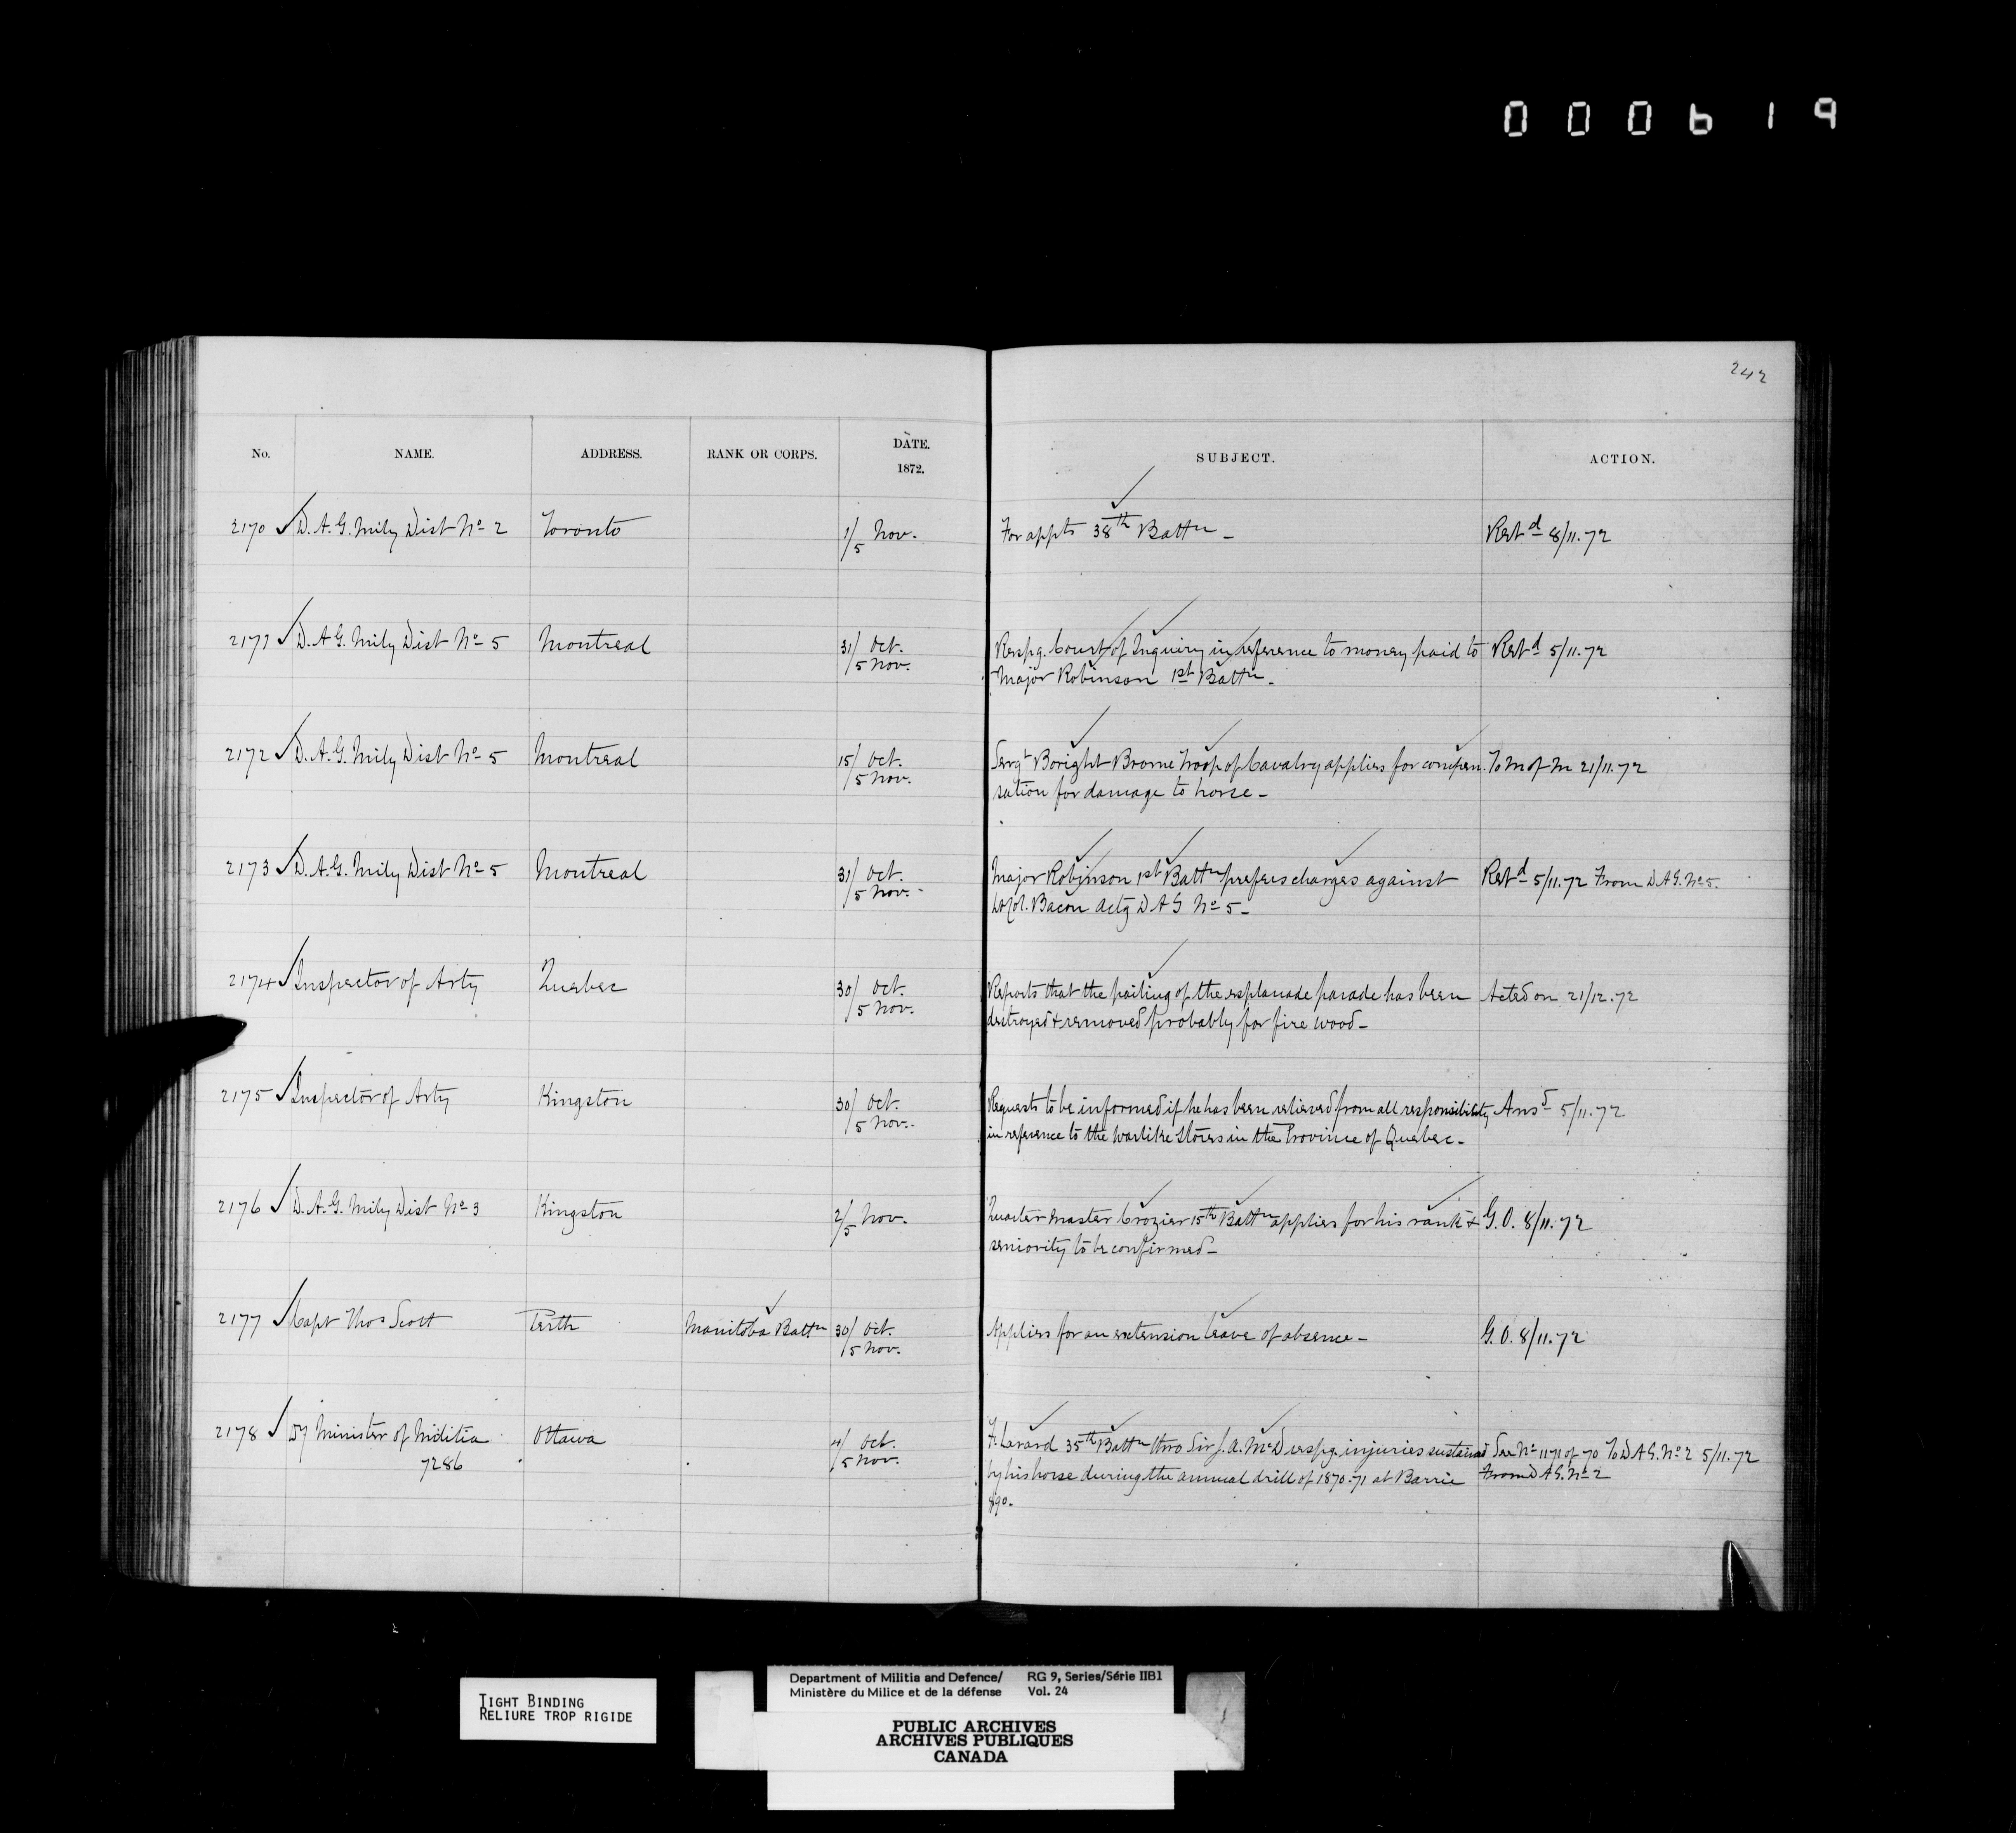 000619
242
No. NAME. ADDRESS. RANK OR CORPS. DATE. 1872. SUBJECT. ACTION.
2170 ✓ D. A. G. Mily Dist No 2 Toronto 1/5 Nov. For appts 38th Battn - Retd 8/11.72
2171 ✓ D. A. G. Mily Dist No 5 Montreal 31/ Oct. Respg. Court of Inquiry in reference to money paid to Retd 5/11.72
/5 Nov. Major Robinson 1st Battn -
2172 ✓ D. A. G. Mily Dist No 5 Montreal 15/ Oct. Sergt Boright Brome Troop of Cavalry applies for compen To M of M 21/11.72
/5 Nov. sation for damage to horse -
2173 ✓ D. A. G. Mily Dist No 5 Montreal 31/ Oct. Major Robinson 1st Battn prefers charges against Retd 5/11.72 From D A G. No 5.
/5 Nov. Lt Col. Bacon actg D A G No 5 -
2174 ✓ Inspector of Arty Quebec 30/ Oct. Reports that the pailing of the esplanade parade has been Acted on 21/12.72
/5 Nov. destroyed & removed probably for fire wood -
2175 ✓ Inspector of Arty Kingston 30/ Oct. Requests to be informed if he has been relieved from all responsibility Ansd 5/11.72
/5 Nov. in reference to the warlike stores in the Province of Quebec -
2176 ✓ D. A. G. Mily Dist No 3 Kingston 2/5 Nov. Quarter Master Crozier 15th Battn applies for his rank & G. O. 8/11.72
seniority to be confirmed -
2177 ✓ Capt Thos Scott Perth Manitoba Battn 30/ Oct. Applies for an extension leave of absence - G. O. 8/11.72
/5 Nov.
2178 ✓ Dy Minister of Militia Ottawa 4/ Oct. F. 35th Battn thro Sir J. A. McD respg. injuries sustained See No 1171 of 70 To D A G. No 2 5/11.72
7286 /5 Nov. by his horse during the annual drill of 1870-71 at Barrie From D A G. No 2
$90.
TIGHT BINDING
RELIURE TROP RIGIDE
Department of Militia and Defence/ RG 9, Series/Série IIB1
Ministère du Milice et de la défense Vol. 24
PUBLIC ARCHIVES
ARCHIVES PUBLIQUES
CANADA